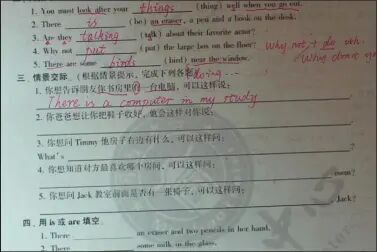 1. You must look after your things (thing) well when you go out.
2. There is (be) an eraser, a pen and a book on the desk.
3. Are they talking (talk) about their favorite actor?
4. Why not put (put) the large box on the floor? why not + do
5. There are some birds (bird) near the window. Why don't
doing...
三、情景交际。(根据情景提示,完成下列各
1. 你想告诉朋友你书房里有一台电脑,可以这样说:
There is a computer in my study
2. 你爸爸想让你把鞋子收好,他会这样对你说:
3. 你想问 Timmy 他房子右边有什么,可以这样问:
What's
4. 你想知道对方最喜欢哪个房间,可以这样问:
room?
5. 你想问 Jack 教室前面是否有一张椅子,可以这样问:
, Jack?
四、用 is 或 are 填空
1. There an eraser and two pencils in her hand.
2. There some milk in the glass.